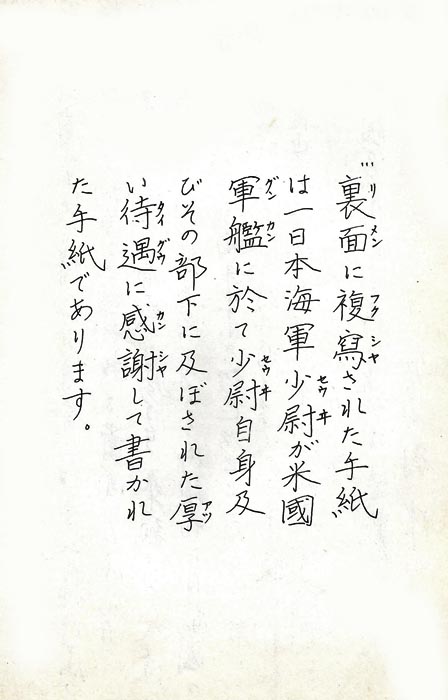 裏面に複寫された手紙
は一日本海軍少尉が米國
軍艦に於て少尉自身及
びその部下に及ぼされた厚
い待遇に感謝して書かれ
た手紙であります。